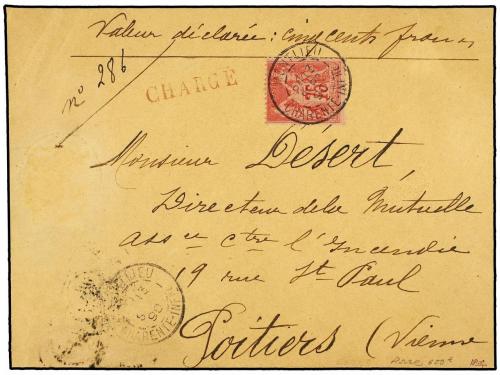 Valeur déclarée : cinq cents francs
n° 286
CHARGÉ
CHARENTE-INFRE
Monsieur Désert,
Directeur de la Mutuelle
Assce ctre l'Incendie
19 rue St Paul
Poitiers (Vienne
CHARENTE-INFRE